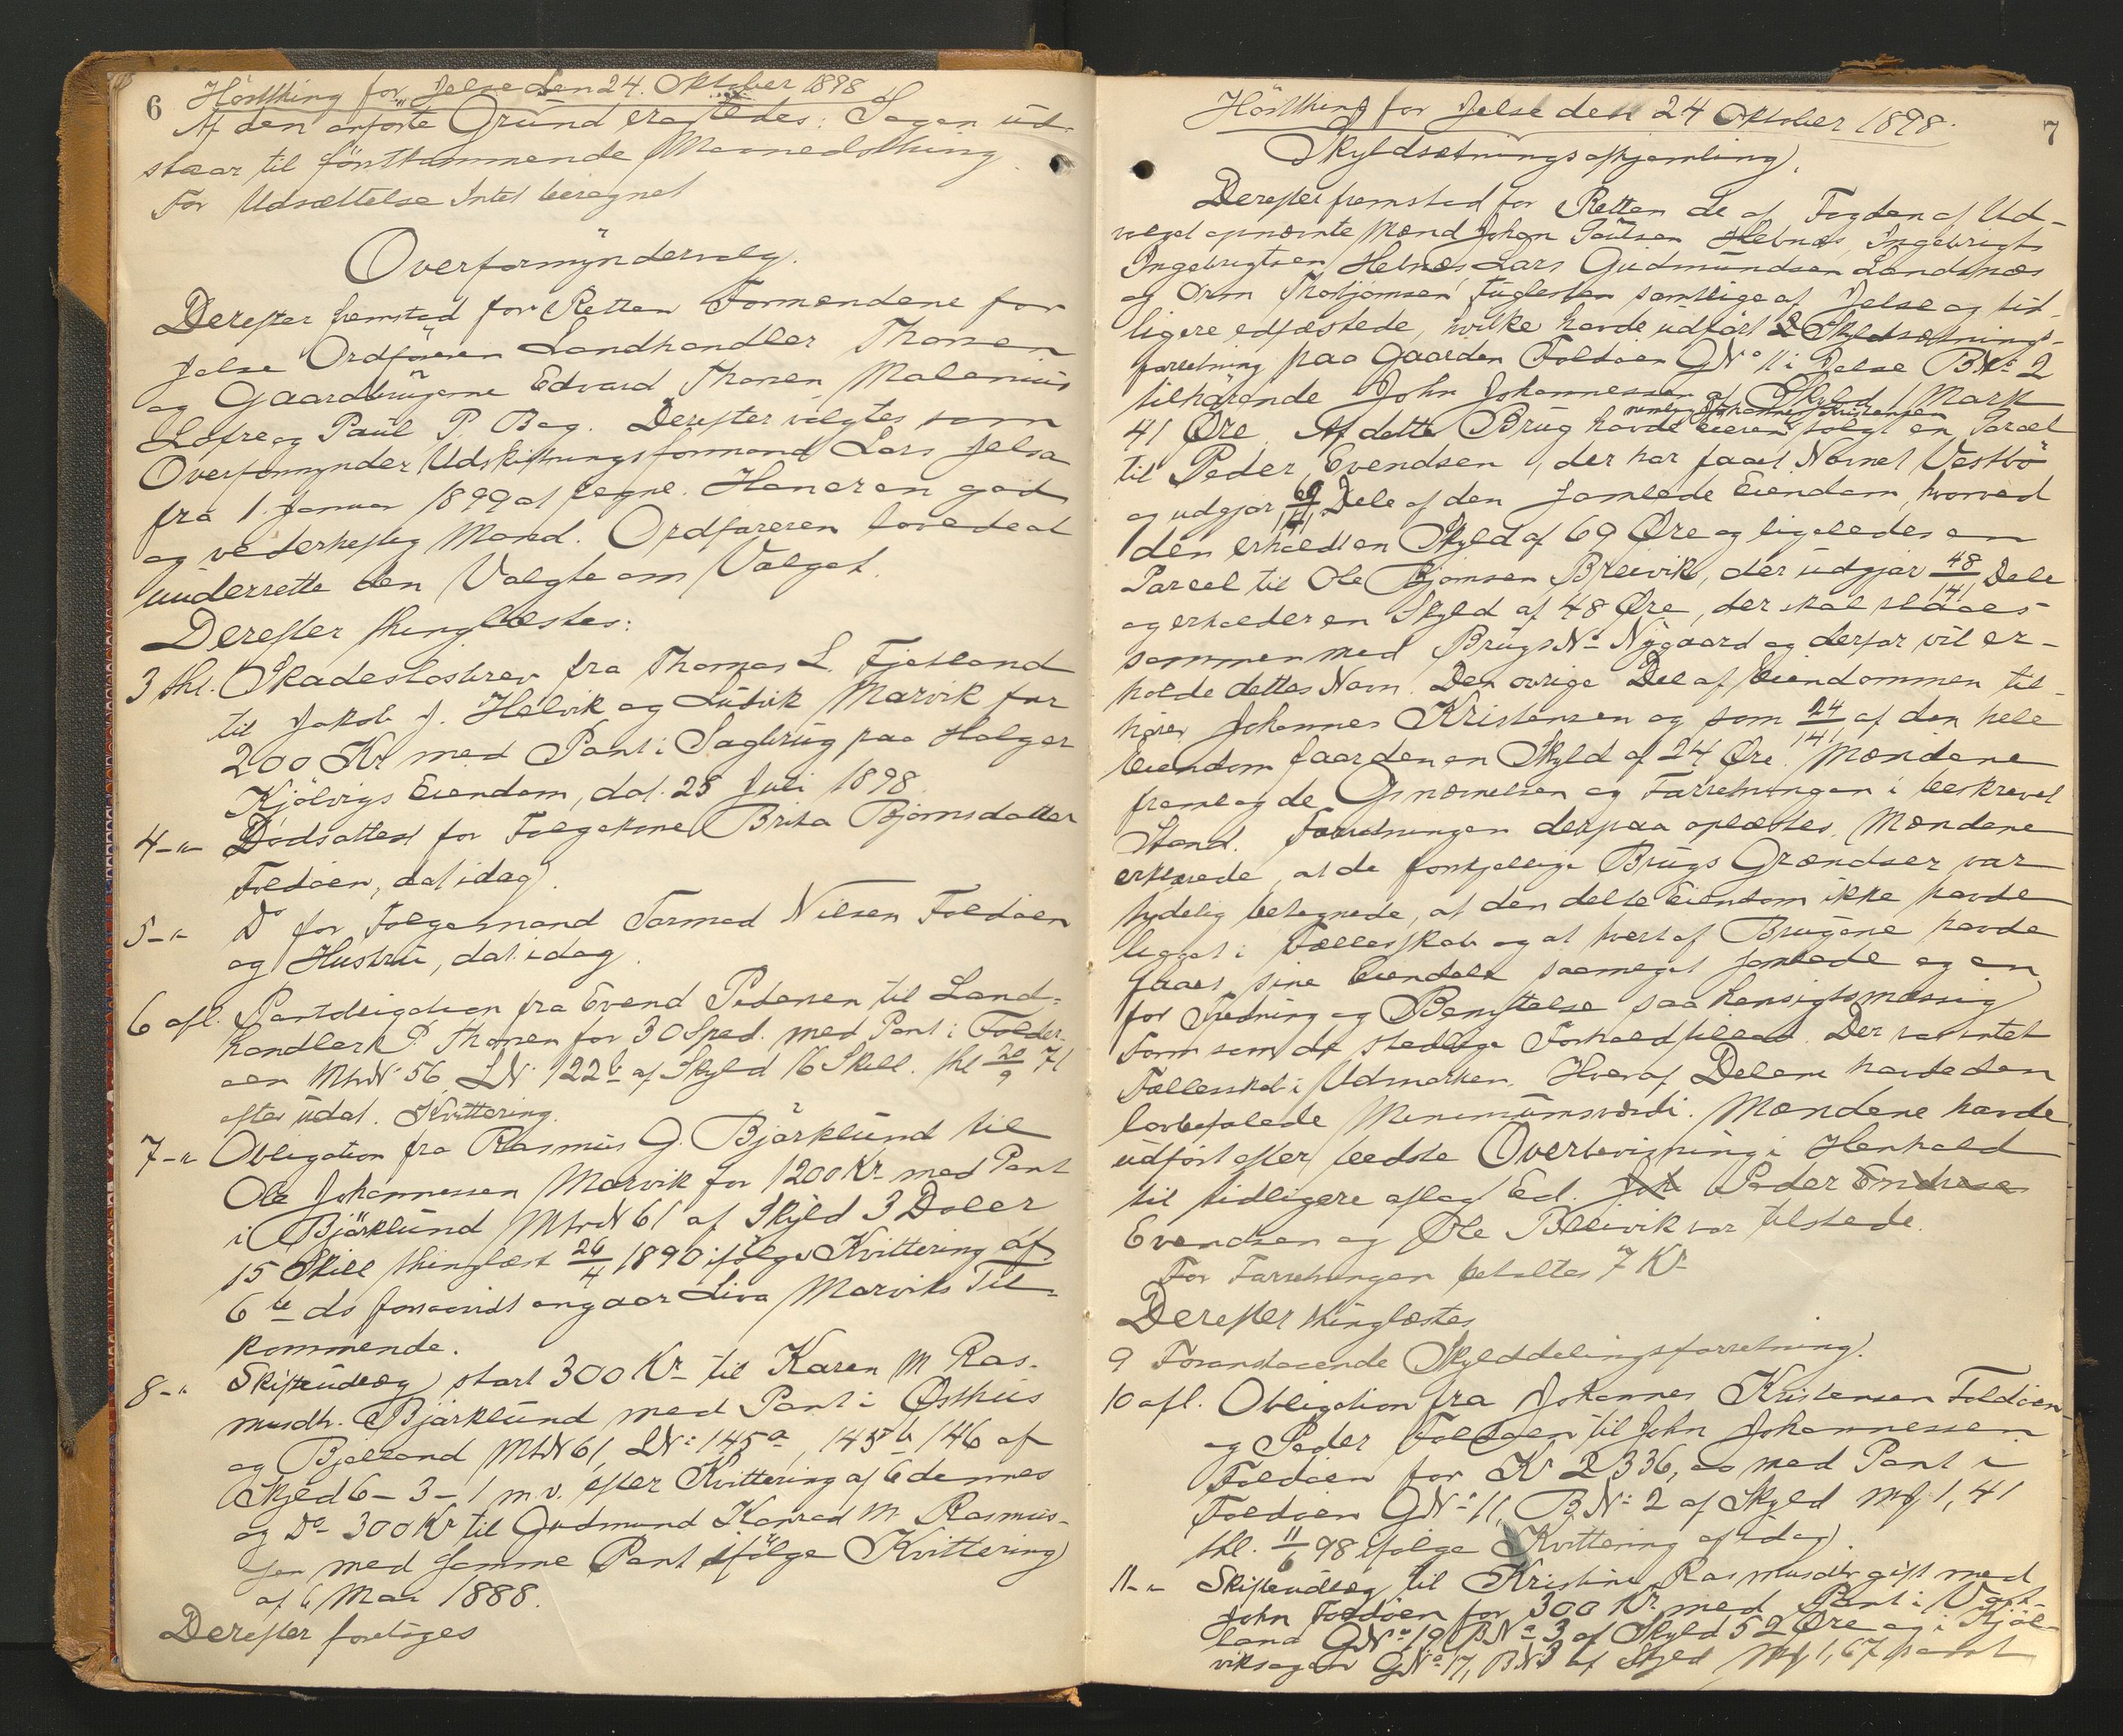 6
Hösthing for Jelse den 24. Oktober 1898
Af den anførte Grund eragtedes: Sagen ud-
staar til førstkommende Maanedsthing
For Udsættelse Intet beregnet
Overformyndervalg.
Derefter fremstod for Retten Formændene for
Jelse Ordføreren Landhandler Thorsen
og Gaardbrugerne Edvard Thorsen Malenius
Lofre og Paul P. Bag. Derefter valgtes som
Overformynder Udskiftningsformand Lars Jelsa
fra 1. Januar 1899 at regne. Han er en god
og vederheftig Mand. Ordføreren lovede at
underrette den Valgte om Valget.
Derefter thinglæstes:
3 thl. Skadesløsbrev fra Thomas L. Fjetland
til Jakob J. Helvik og Ludvik Marvik for
200 Kr med Pant i Sagbrug paa Holger
Kjølvigs Eiendom, dat. 25 Juli 1898.
4 -"- Dødsattest for Folgekone Brita Bjørnsdatter
Foldøen, dat idag.
5 -"- Do for Folgemand Tormod Nilsen Foldøen
og Hustru, dat. idag.
6 afl. Pantobligation fra Evend Pedersen til Land-
handler P. Thorsen for 30 Sped. med Pant i Foldø-
en MtrN 56, LN 122b af Skyld 16 Skill. thl 20/9 71
efter udat. Kvittering.
7 -"- Obligation fra Rasmus G. Bjørklund til
Ole Johannessen Marvik for 1200 Kr med Pant
i Bjørklund MtrN 61 af Skyld 3 Daler
15 Skill thinglæst 26/4 1890 ifølge Kvittering af
6te ds forsaavidt angaar Liva Marviks Til-
kommende.
8 -"- Skifteudlæg stort 300 Kr til Karen M Ras-
musdtr. Bjørklund med Pant i Østhus
og Bjelland MtrN 61, LN: 145a, 145b 146 af
Skyld 6 - 3 - 1 m.v. efter Kvittering af 6 dennes
og Do 300 Kr til Gudmund Konrad M Rasmus-
sen med samme Pant ifølge Kvittering
af 6 Mai 1888.
Derefter foretoges
7
Hösthing for Jelse den 24 Oktober 1898.
Skyldsætningsafhjemling.
Derefter fremstod for Retten de af Fogden af Ud-
valget opnævnte Mænd Johan Paulsen Hebnes, Ingebrigt
Ingebrigtsen Hebnes Lars Gudmundsen Landsnes
og Orm Thorbjørnsen Fuglesten samtlige af Jelse og tid-
ligere edfæstede, hvilke havde udført Skyldsætnings-
forretning paa Gaarden Foldøen GNo 11 i Jelse BNo 2
tilhørende John Johannessen af Skyld 1 Mark
nemlig Johannes Kristensen
41 Øre. Af dette Brug havde eieren solgt en Parcel
til Peder Evendsen, der har faaet Navnet Vestbø
og udgjør 69/141 Dele af den samlede Eiendom, hvorved
den erholdt en Skyld af 69 Øre og ligeledes en
Parcel til Ole Bjørnsen Breivik, der udgjør 48/141 Dele
og erholder en Skyld af 48 Øre, der skal
sammen med BrugsNo Nygaard og derfor vil er-
holde dettes Navn. Den øvrige Del af Eiendommen til-
hører Johannes Kristensen og som 24/141 af den hele
Eiendom faar den en Skyld af 24 Øre. Mændene
fremlagde Opnævnelsen og Forretningen i beskrevet
Stand. Forretningen derpaa oplæstes. Mændene
erklærede, at de forskjellige Brugs Grændser var
tydelig betegnede, at den delte Eiendom ikke havde
ligget i Fællesskab og at hvert af Brugene havde
faaet sine Eiendele saameget samlede og en
for Fredning og Benyttelse saa hensigtsmæssig
Form som de stedlige Forhold tillod. Der var intet
Fællesskab i Udmarken. Hver af Delene havde den
lovbefalede Minimumsværdi. Mændene havde
udført efter bedste Overbevisning i Henhold
til tidligere aflagt Ed. Peder
Evendsen og Ole Breivik var tilstede.
For Forretningen betaltes 7 Kr
Derefter thinglæstes
9 Foranstaaende Skylddelingsforretning.
10 afl. Obligation fra Johannes Kristensen Foldøen
og Peder Foldøen til John Johannessen
Foldøen for Kr 2336,00 med Pant i
Foldøen GNo 11, BNo 2 af Skyld Mk 1,41
thl. 11/6 98 ifølge Kvittering af idag.
11 -"- Skifteudlæg til Kristine Rasmusdtr gift med
John Foldøen for 300 Kr med Pant i Vart-
land GNo 19 BNo 3 af Skyld 52 Øre og i Kjøl-
viksagen GNo 17, BN 3 af Skyld Mk 1,67 samt